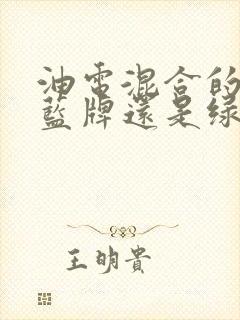 油電混合的
藍牌還是綠
王明貴